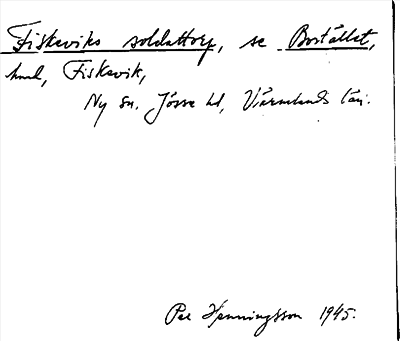 Fiskeviks soldattorp, se Bortället,
hmd, Fiskevik,
Ny sn. Jösse hd, Värmlands län.
Per Henningsson 1945.